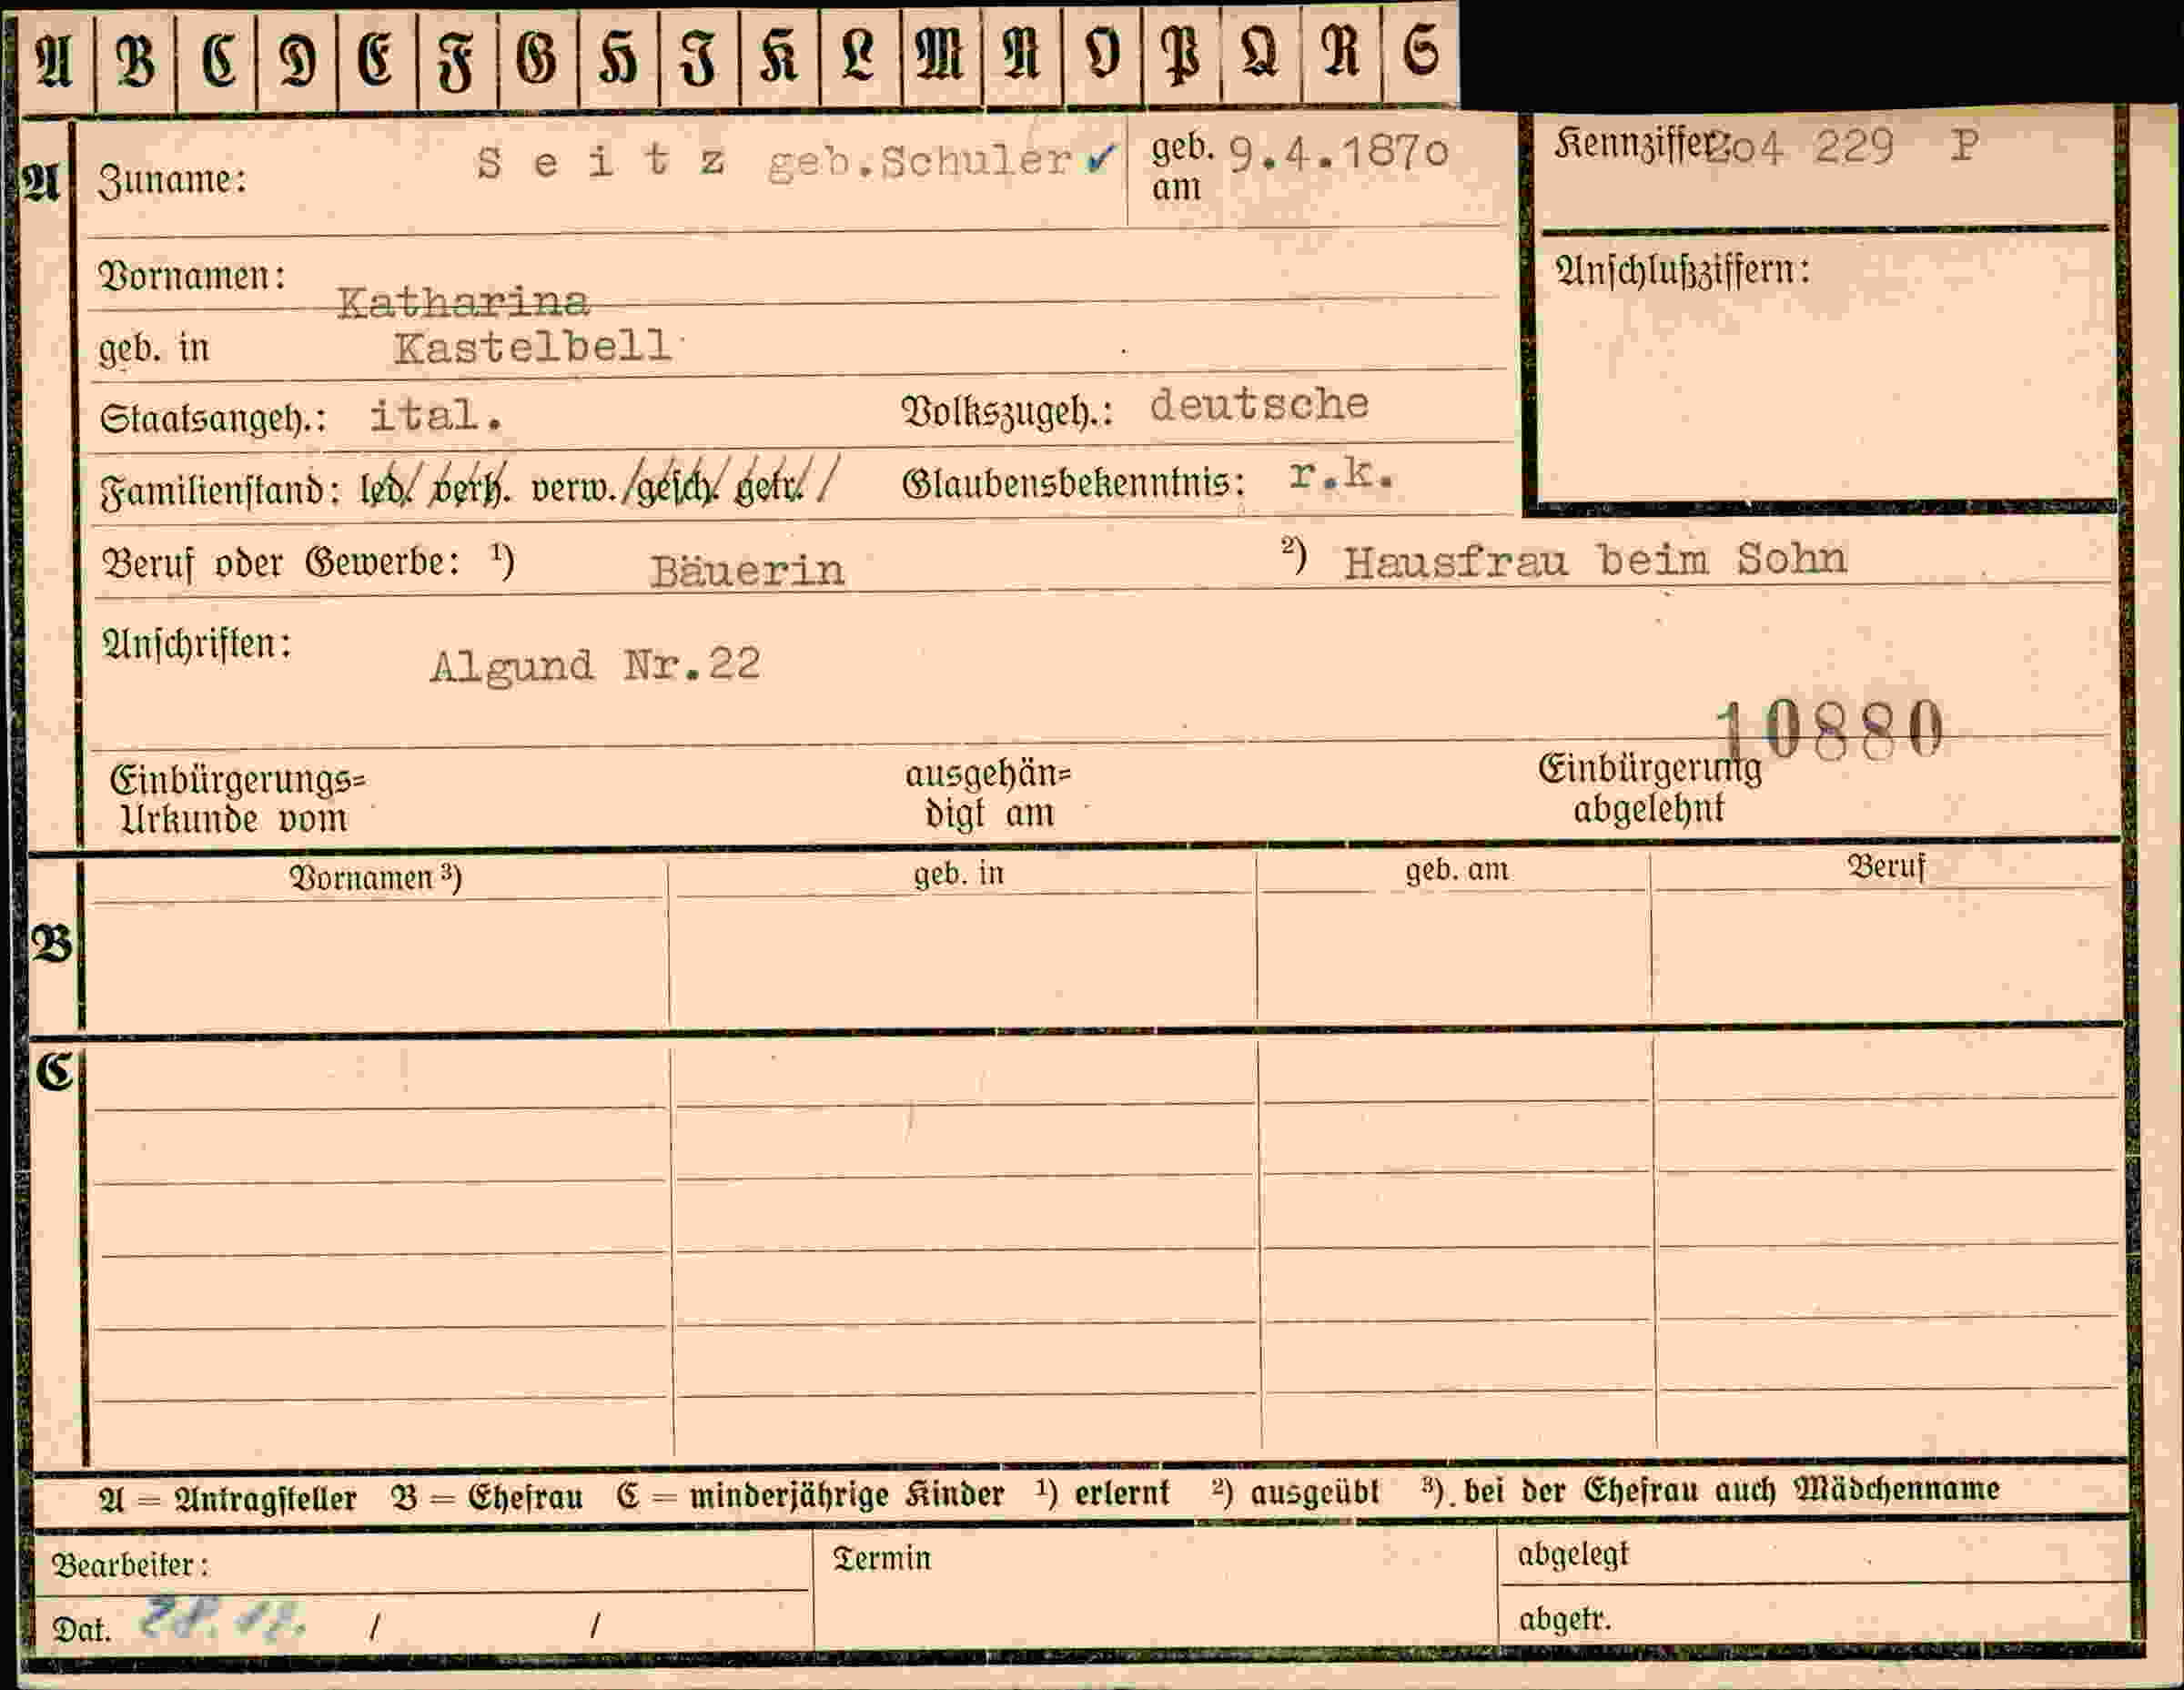 A B C D E F G H I K L M N O P Q R S
A Zuname: Seitz geb.Schuler ✓ geb. am 9.4.1870 Kennziffer 204 229 P
Vornamen: Katharina Anschlußziffern:
geb. in Kastelbell
Staatsangeh.: ital. Volkszugeh.: deutsche
Familienstand: led./ verh. verw./gesch./ getr./ Glaubensbekenntnis: r.k.
Beruf oder Gewerbe: ¹) Bäuerin ²) Hausfrau beim Sohn
Anschriften: Algund Nr.22
10880
Einbürgerungs= ausgehän= Einbürgerung
Urkunde vom digt am abgelehnt
Vornamen ³) geb. in geb. am Beruf
B
C
A = Antragsteller B = Ehefrau C = minderjährige Kinder ¹) erlernt ²) ausgeübt ³) bei der Ehefrau auch Mädchenname
Bearbeiter: Termin abgelegt
Dat. 28.12. / / abgetr.